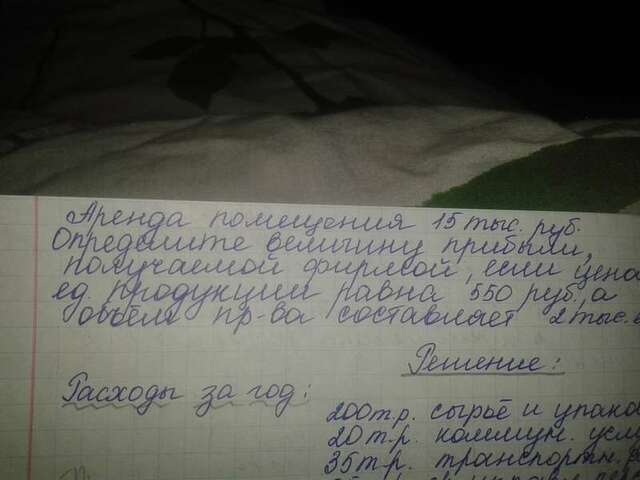 Аренда помещения 15 тыс. руб.
Определите величину прибыли,
получаемой фирмой, если цена
ед. продукции равна 550 руб., а
объём пр-ва составляет 2 тыс.
Решение:
Расходы за год:
200т.р. сырьё и упаков
20 т.р. коммун. услу
35 т.р. транспортн.